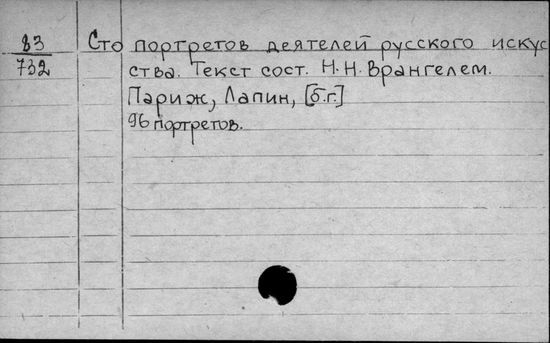 83 Сто портретов деятелей русского искус
732 ства. Текст сост. Н.Н. Врангелем.
Париж, Лапин, [б.г.]
96 портретов.